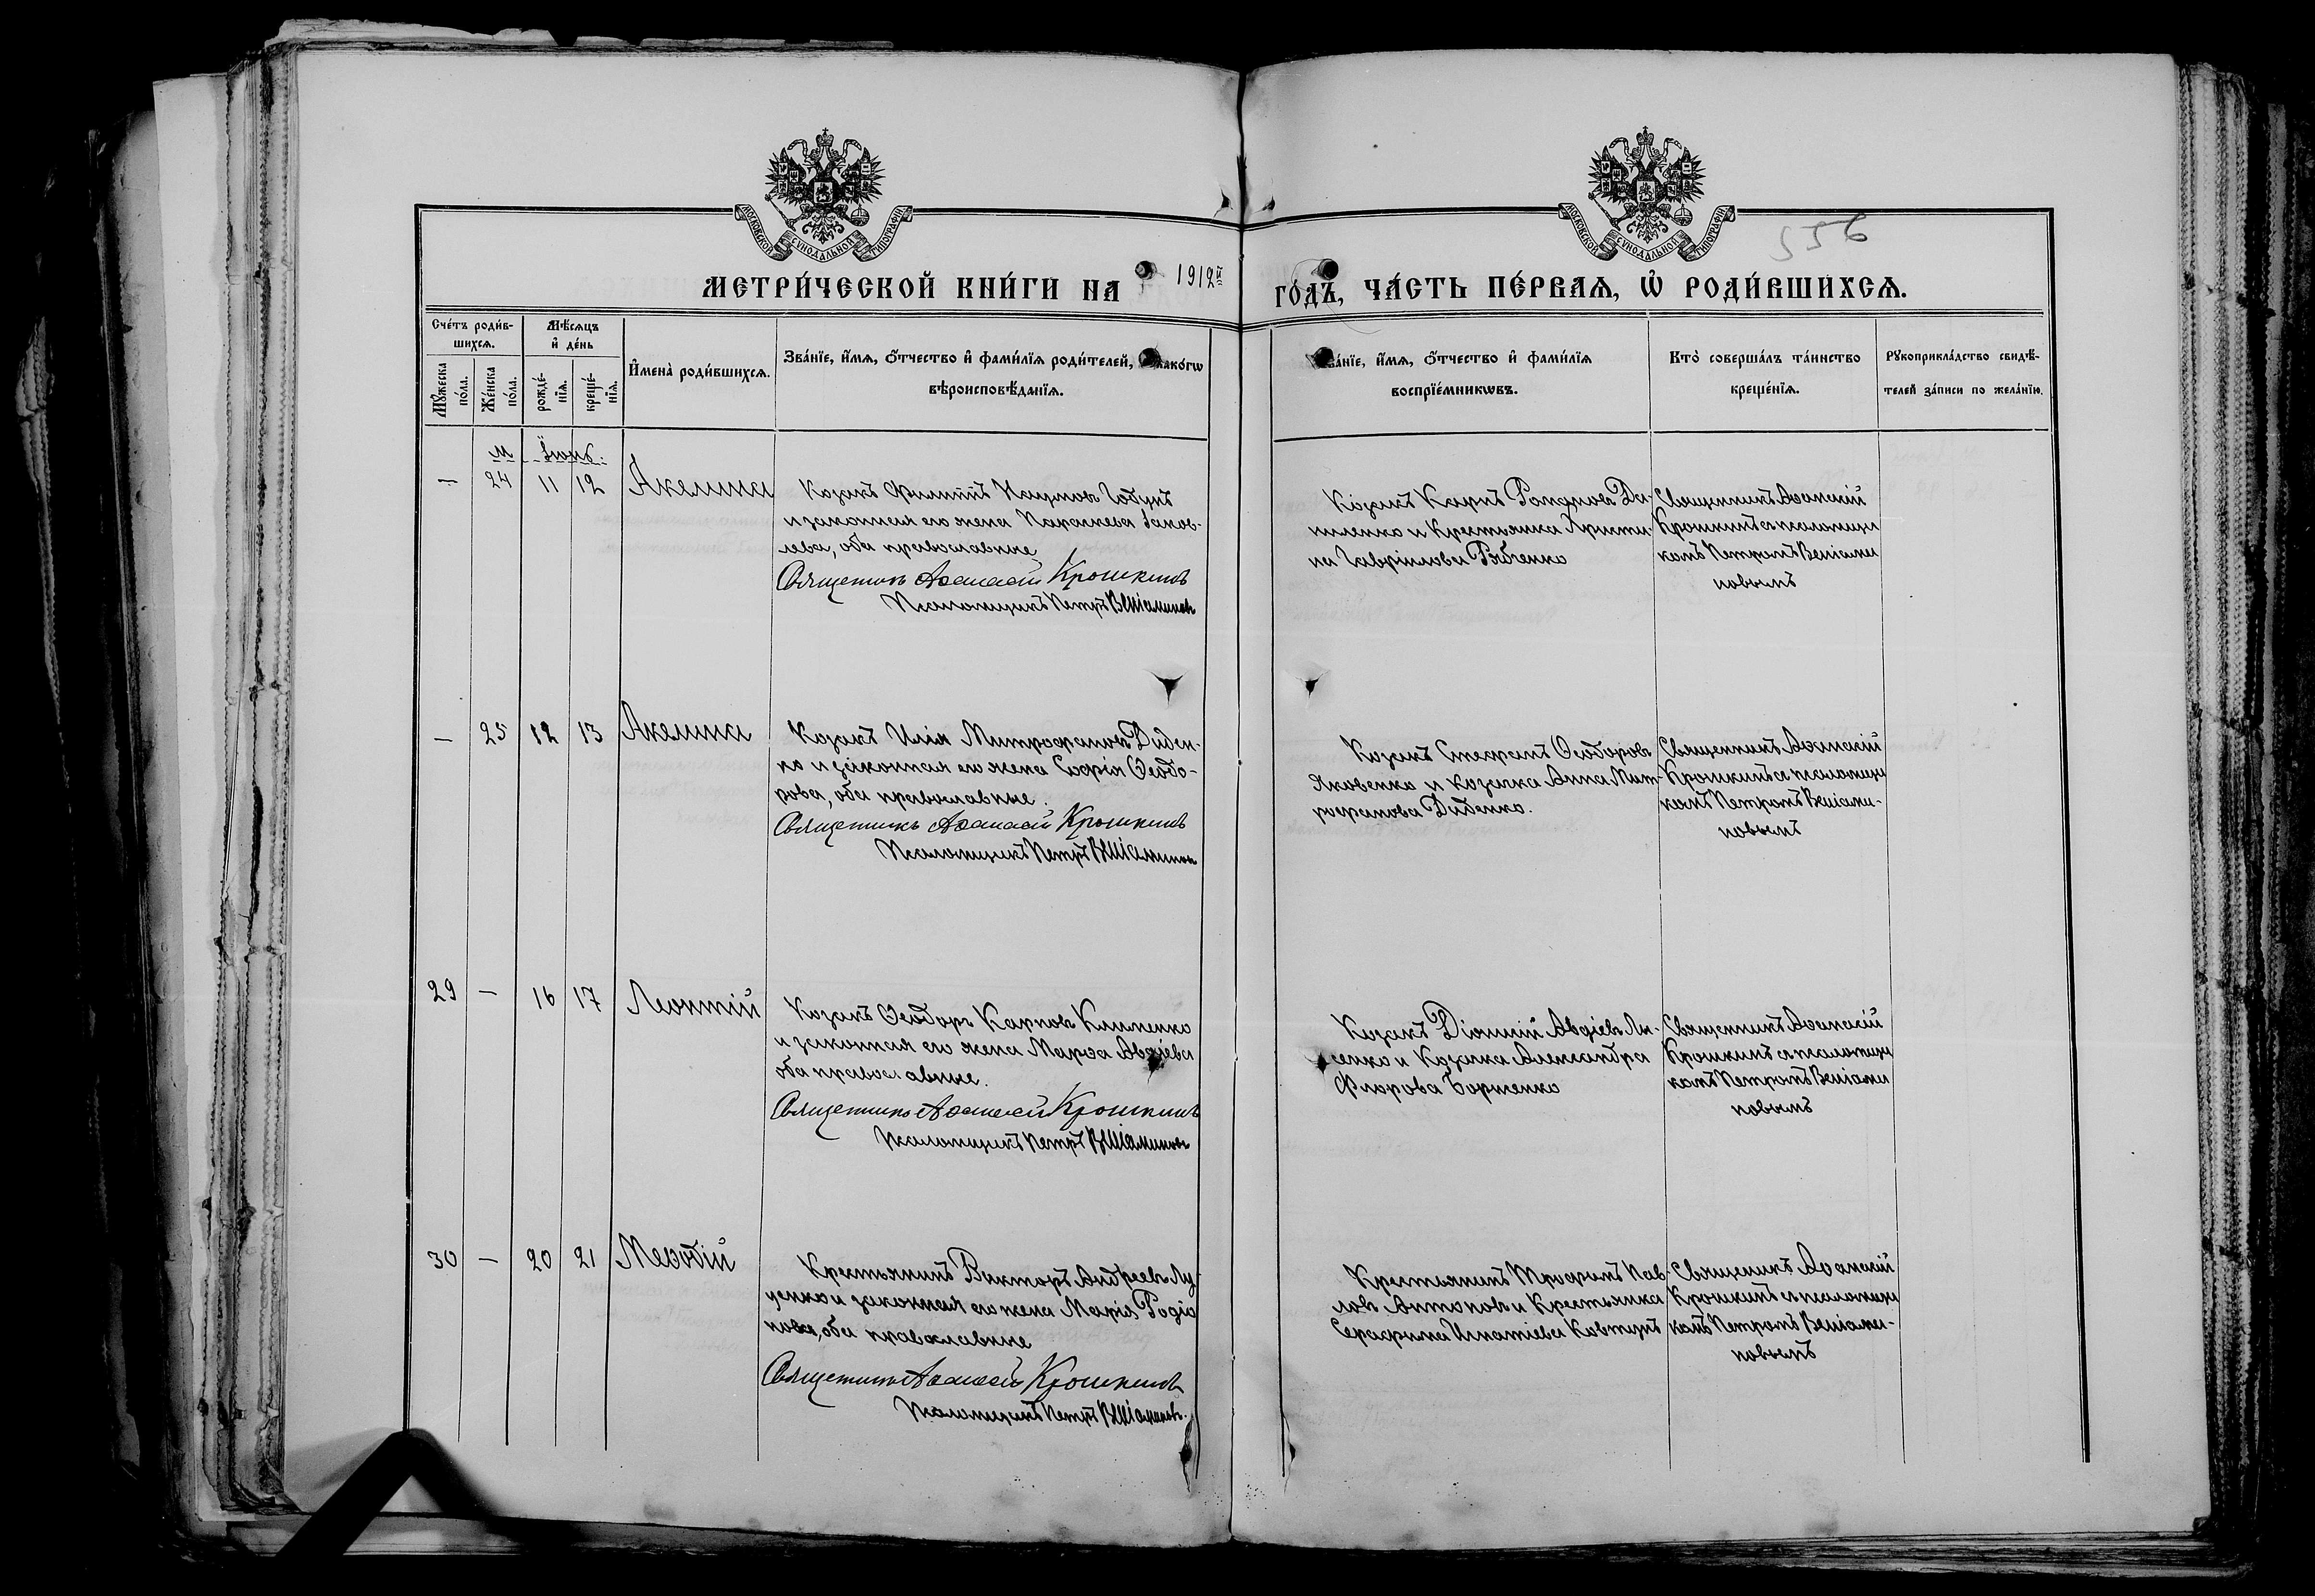 МОСКОВСКОЙ СУНОДАЛЬНОЙ ТИПОГРАФІИ
МОСКОВСКОЙ СУНОДАЛЬНОЙ ТИПОГРАФІИ
556
МЕТРИ́ЧЕСКОЙ КНИ́ГИ НА 1912й ГО́ДЪ, ЧА́СТЬ ПЕ́РВАЯ, Ѡ҆ РОДИ́ВШИХСЯ.
Сче́тъ роди́в-
шихся.
Мꙋ́жеска по́ла.
Же́нска по́ла.
Мѣ́сяцъ
и҆ де́нь
рожде́-
нїя.
креще́-
нїя.
И҆мена̀ роди́вшихся.
Зва́нїе, и҆́мя, о҆́тчество и҆ фами́лїя роди́телей, како́гѡ
вѣроисповѣ́данїя.
ва́нїе, и҆́мя, о҆́тчество и҆ фами́лїя
воспрїе́мникѡвъ.
Кто̀ соверша́лъ та́инство
креще́нїя.
Рꙋкоприкла́дство свидѣ́-
телей за́писи по жела́нїю.
м Іюнь.
— 24 11 12 Акелина
Козакъ Филиппъ Наумовъ Говтунъ
и законная его жена Параскева Іаков-
лева, оба православные
Священникъ Аѳанасій Крошкинъ
Псаломщикъ Петръ Веніаминовъ
Козакъ Карпъ Романовъ Да-
ниленко и Крестьянка Христи-
на Гавріилова Рябченко
Священникъ Аѳанасій
Крошкинъ съ псаломщи
комъ Петромъ Веніами
новымъ
— 25 12 13 Акелина
Козакъ Илія Митрофановъ Диден-
ко и законная его жена Софія Ѳеодо-
рова, оба православные.
Священникъ Аѳанасій Крошкинъ
Псаломщикъ Петръ Веніаминовъ
Козакъ Стефанъ Ѳеодоровъ
Яковенко и козачка Анна Мит-
рофанова Диденко.
Священникъ Аѳанасій
Крошкинъ съ псаломщи
комъ Петромъ Веніами-
новымъ
29 — 16 17 Леонтій
Козакъ Ѳеодоръ Карповъ Клименко
и законная его жена Марѳа Авдіева
оба православные.
Священникъ Аѳанасій Крошкинъ
Псаломщикъ Петръ Веніаминовъ
Козакъ Діонисій Авдіевъ Ли-
сенко и Козачка Александра
Флорова Борженко
Священникъ Аѳанасій
Крошкинъ съ псаломщи
комъ Петромъ Веніами
новымъ
30 — 20 21 Меѳодій
Крестьянинъ Викторъ Андреевъ Лу-
ценко и законная его жена Марія Родіо
нова, оба православные
Священникъ Аѳанасій Крошкинъ
Псаломщикъ Петръ Веніаминовъ.
Крестьянинъ Трофимъ Пав-
ловъ Антоновъ и Крестьянка
Серафима Игнатіева Ковтунъ
Священникъ Аѳанасій
Крошкинъ съ псаломщи
комъ Петромъ Веніами-
новымъ